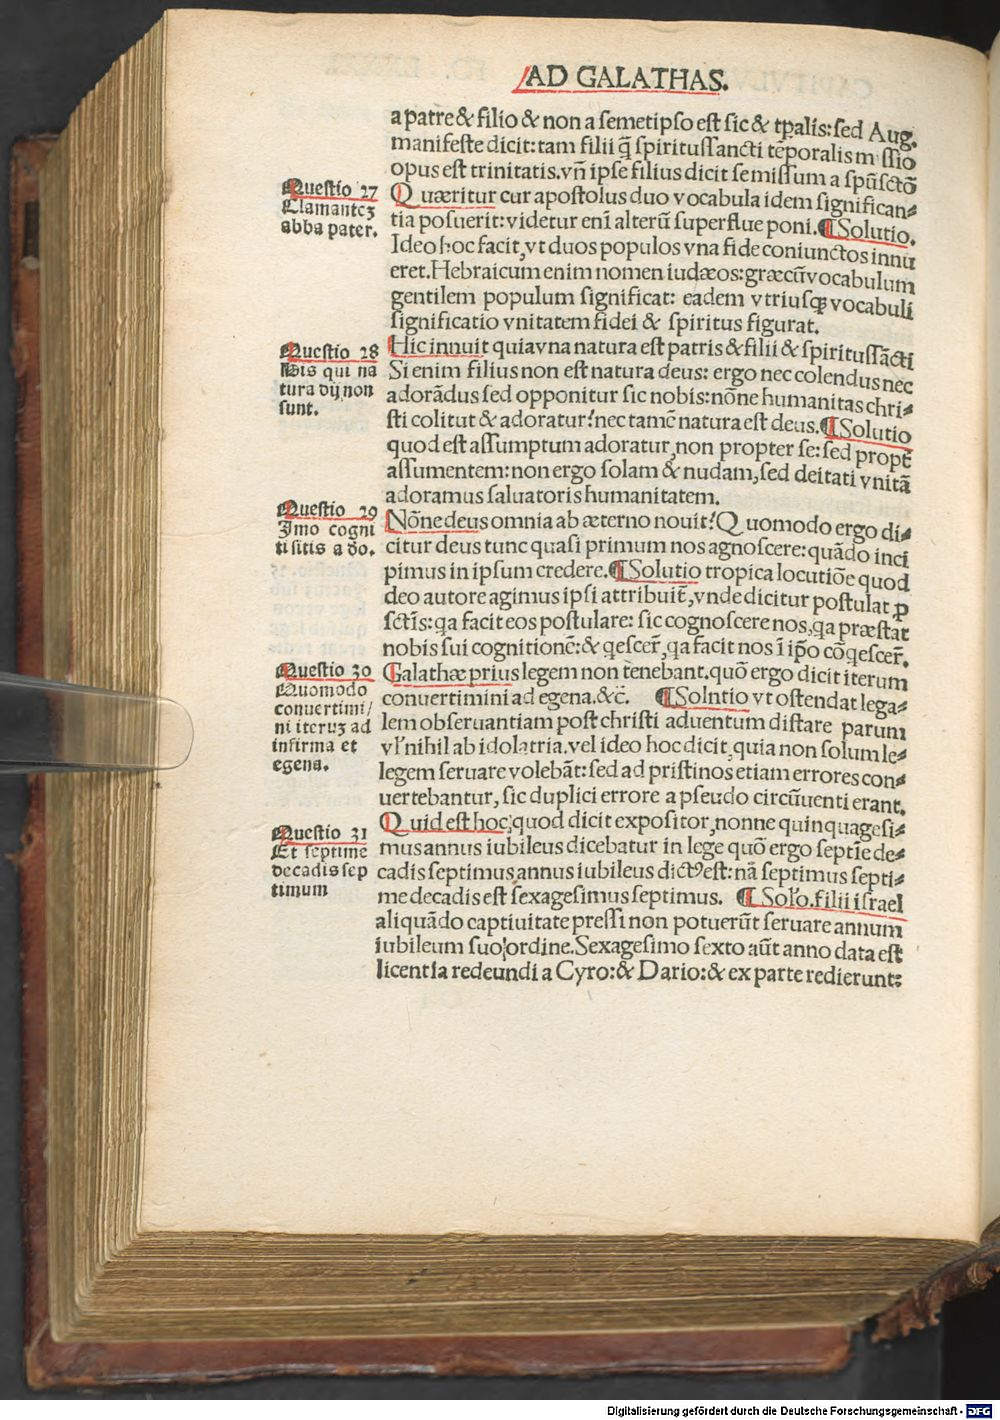 AD GALATHAS.
a patre & filio & non a semetipso est sic & tꝑalis: sed Aug.
manifeste dicit: tam filii q̃ spiritussancti tẽporalis m ssio
opus est trinitatis. vñ ipse filius dicit se missum a spũsctõ
Questio 27
Clamantez
abba pater.
Quæritur cur apostolus duo vocabula idem significan⸗
tia posuerit: videtur eni alterũ superflue poni. ¶Solutio.
Ideo hoc facit, vt duos populos vna fide coniunctos innu
eret. Hebraicum enim nomen iudæos: græcũ vocabulum
gentilem populum significat: eadem vtriusqꝫ vocabuli
significatio vnitatem fidei & spiritus figurat.
Questio 28
His qui na
tura dij non
sunt.
Hic innuit quia vna natura est patris & filii & spiritussãcti
Si enim filius non est natura deus: ergo nec colendus nec
adorãdus sed opponitur sic nobis: nõne humanitas chri⸗
sti colitut & adoratur? nec tamẽ natura est deus. ¶Solutio
quod est assumptum adoratur, non propter se: sed propt̃
assumentem: non ergo solam & nudam, sed deitati vnitã
adoramus saluatoris humanitatem.
Questio 29
Imo cogni
ti sitis a do.
Nõne deus omnia ab æterno nouit? Quomodo ergo di⸗
citur deus tunc quasi primum nos agnoscere: quãdo inci
pimus in ipsum credere. ¶Solutio tropica locutiõe quod
deo autore agimus ipsi attribuit̃, vnde dicitur postulat ꝑ
sctĩs: qa facit eos postulare: sic cognoscere nos, qa præstat
nobis sui cognitionẽ: & qescer̃, qa facit nos ĩ ip̃o cõqescer̃.
Questio 30
Quomodo
conuertimi/
ni iteruz ad
infirma et
egena.
Galathæ prius legem non tenebant. quõ ergo dicit iterum
conuertimini ad egena. &c̃. ¶Solntio vt ostendat lega⸗
lem obseruantiam post christi aduentum distare parum
vl' nihil ab idolatria. vel ideo hoc dicit, quia non solum le⸗
legem seruare volebãt: sed ad pristinos etiam errores con⸗
uertebantur, sic duplici errore a pseudo circũuenti erant.
Questio 31
Et septime
decadis sep
timum
Quid est hoc, quod dicit expositor, nonne quinquagesi⸗
mus annus iubileus dicebatur in lege quõ ergo septiẽ de⸗
cadis septimus annus iubileus dictꝰ est: nã septimus septi⸗
me decadis est sexagesimus septimus. ¶Solꝰo. filii israel
aliquãdo captiuitate pressi non potuerũt seruare annum
iubileum suo ordine. Sexagesimo sexto aũt anno data est
licentia redeundi a Cyro: & Dario: & ex parte redierunt:
Digitalisierung gefördert durch die Deutsche Forschungsgemeinschaft - DFG